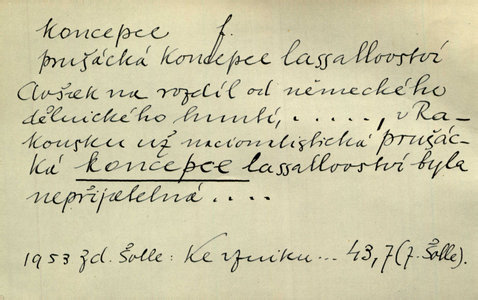 koncepce f.
prušácká koncepce lassallovství
Avšak na rozdíl od německého
dělnického hnutí, . . . . . , v Ra-
kousku už nacionalistická prušác-
ká koncepce lassallovství byla
nepřijatelná . . . .
1953 Zd. Šolle: Ke vzniku ... 43,7 (Z. Šolle).